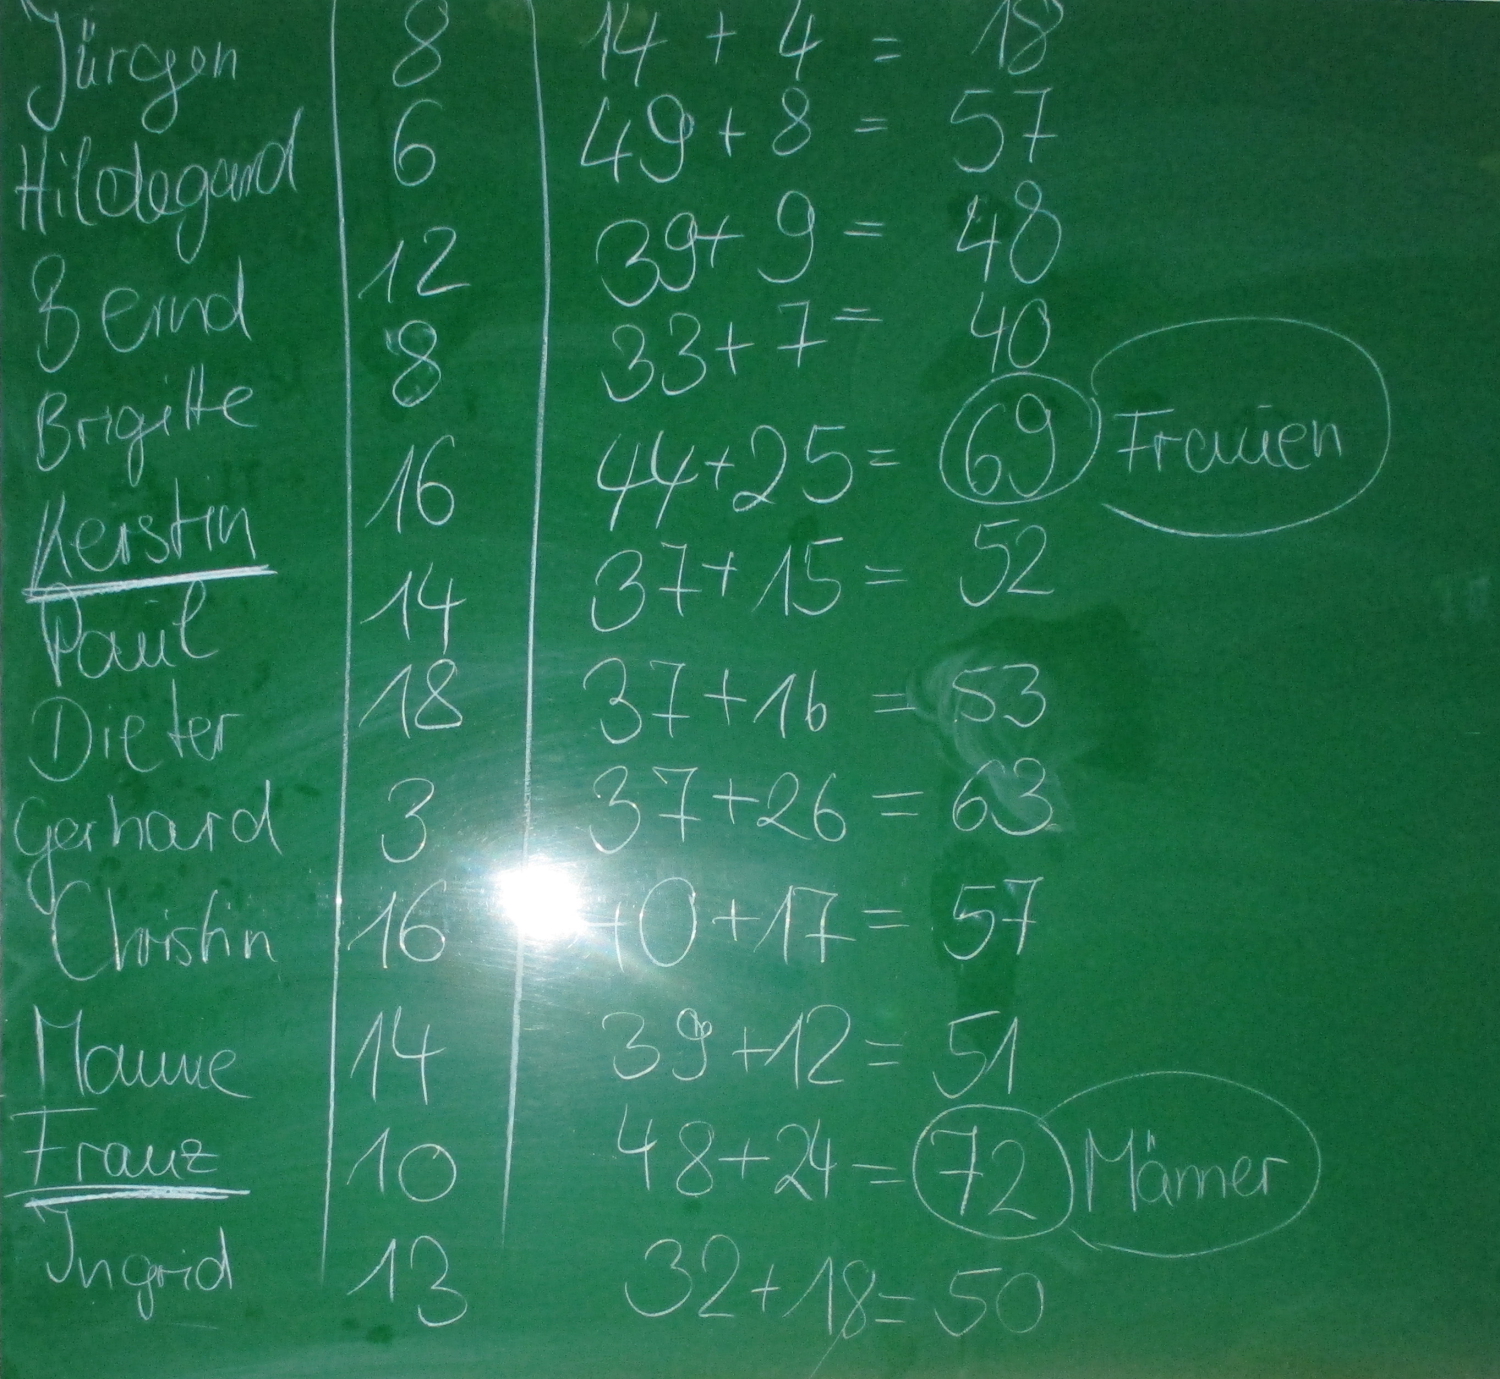 Jürgen 8 14 + 4 = 18
Hildegard 6 49 + 8 = 57
Bernd 12 39 + 9 = 48
Brigitte 8 33 + 7 = 40
Kerstin 16 44 + 25 = 69 Frauen
Paul 14 37 + 15 = 52
Dieter 18 37 + 16 = 53
Gerhard 3 37 + 26 = 63
Christin 16 40 + 17 = 57
Manne 14 39 + 12 = 51
Franz 10 48 + 24 = 72 Männer
Ingrid 13 32 + 18 = 50